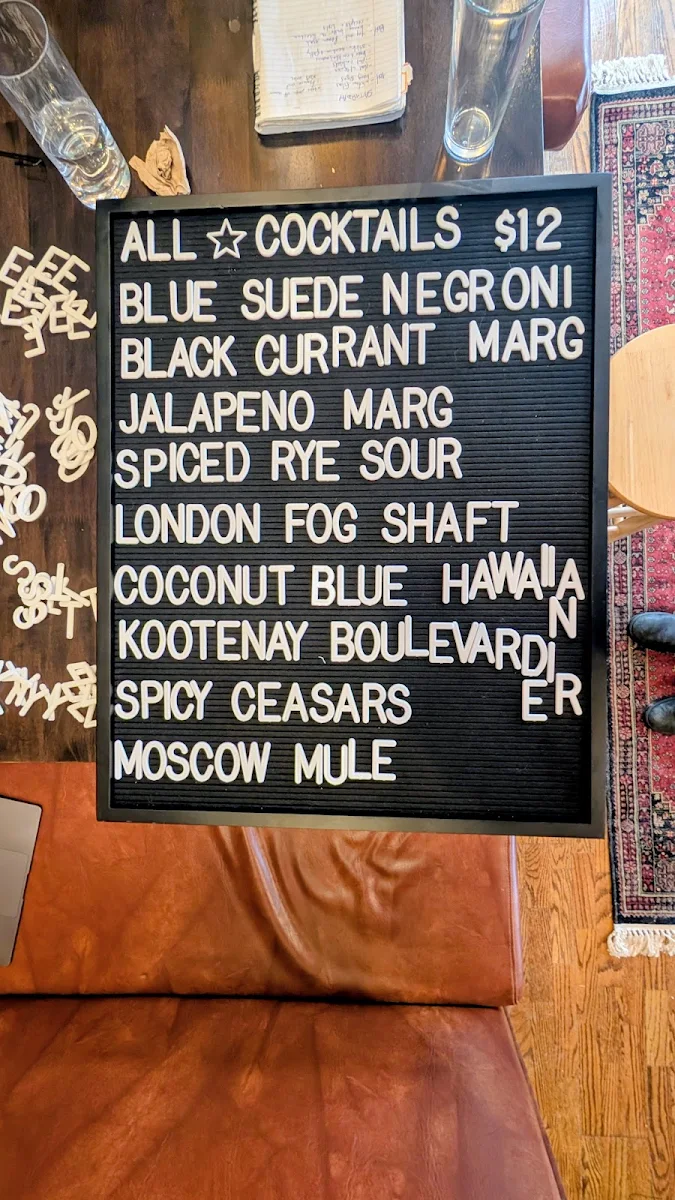 ALL ☆ COCKTAILS $12
BLUE SUEDE NEGRONI
BLACK CURRANT MARG
JALAPENO MARG
SPICED RYE SOUR
LONDON FOG SHAFT
COCONUT BLUE HAWAIIAN
KOOTENAY BOULEVARDIER
SPICY CEASARS
MOSCOW MULE